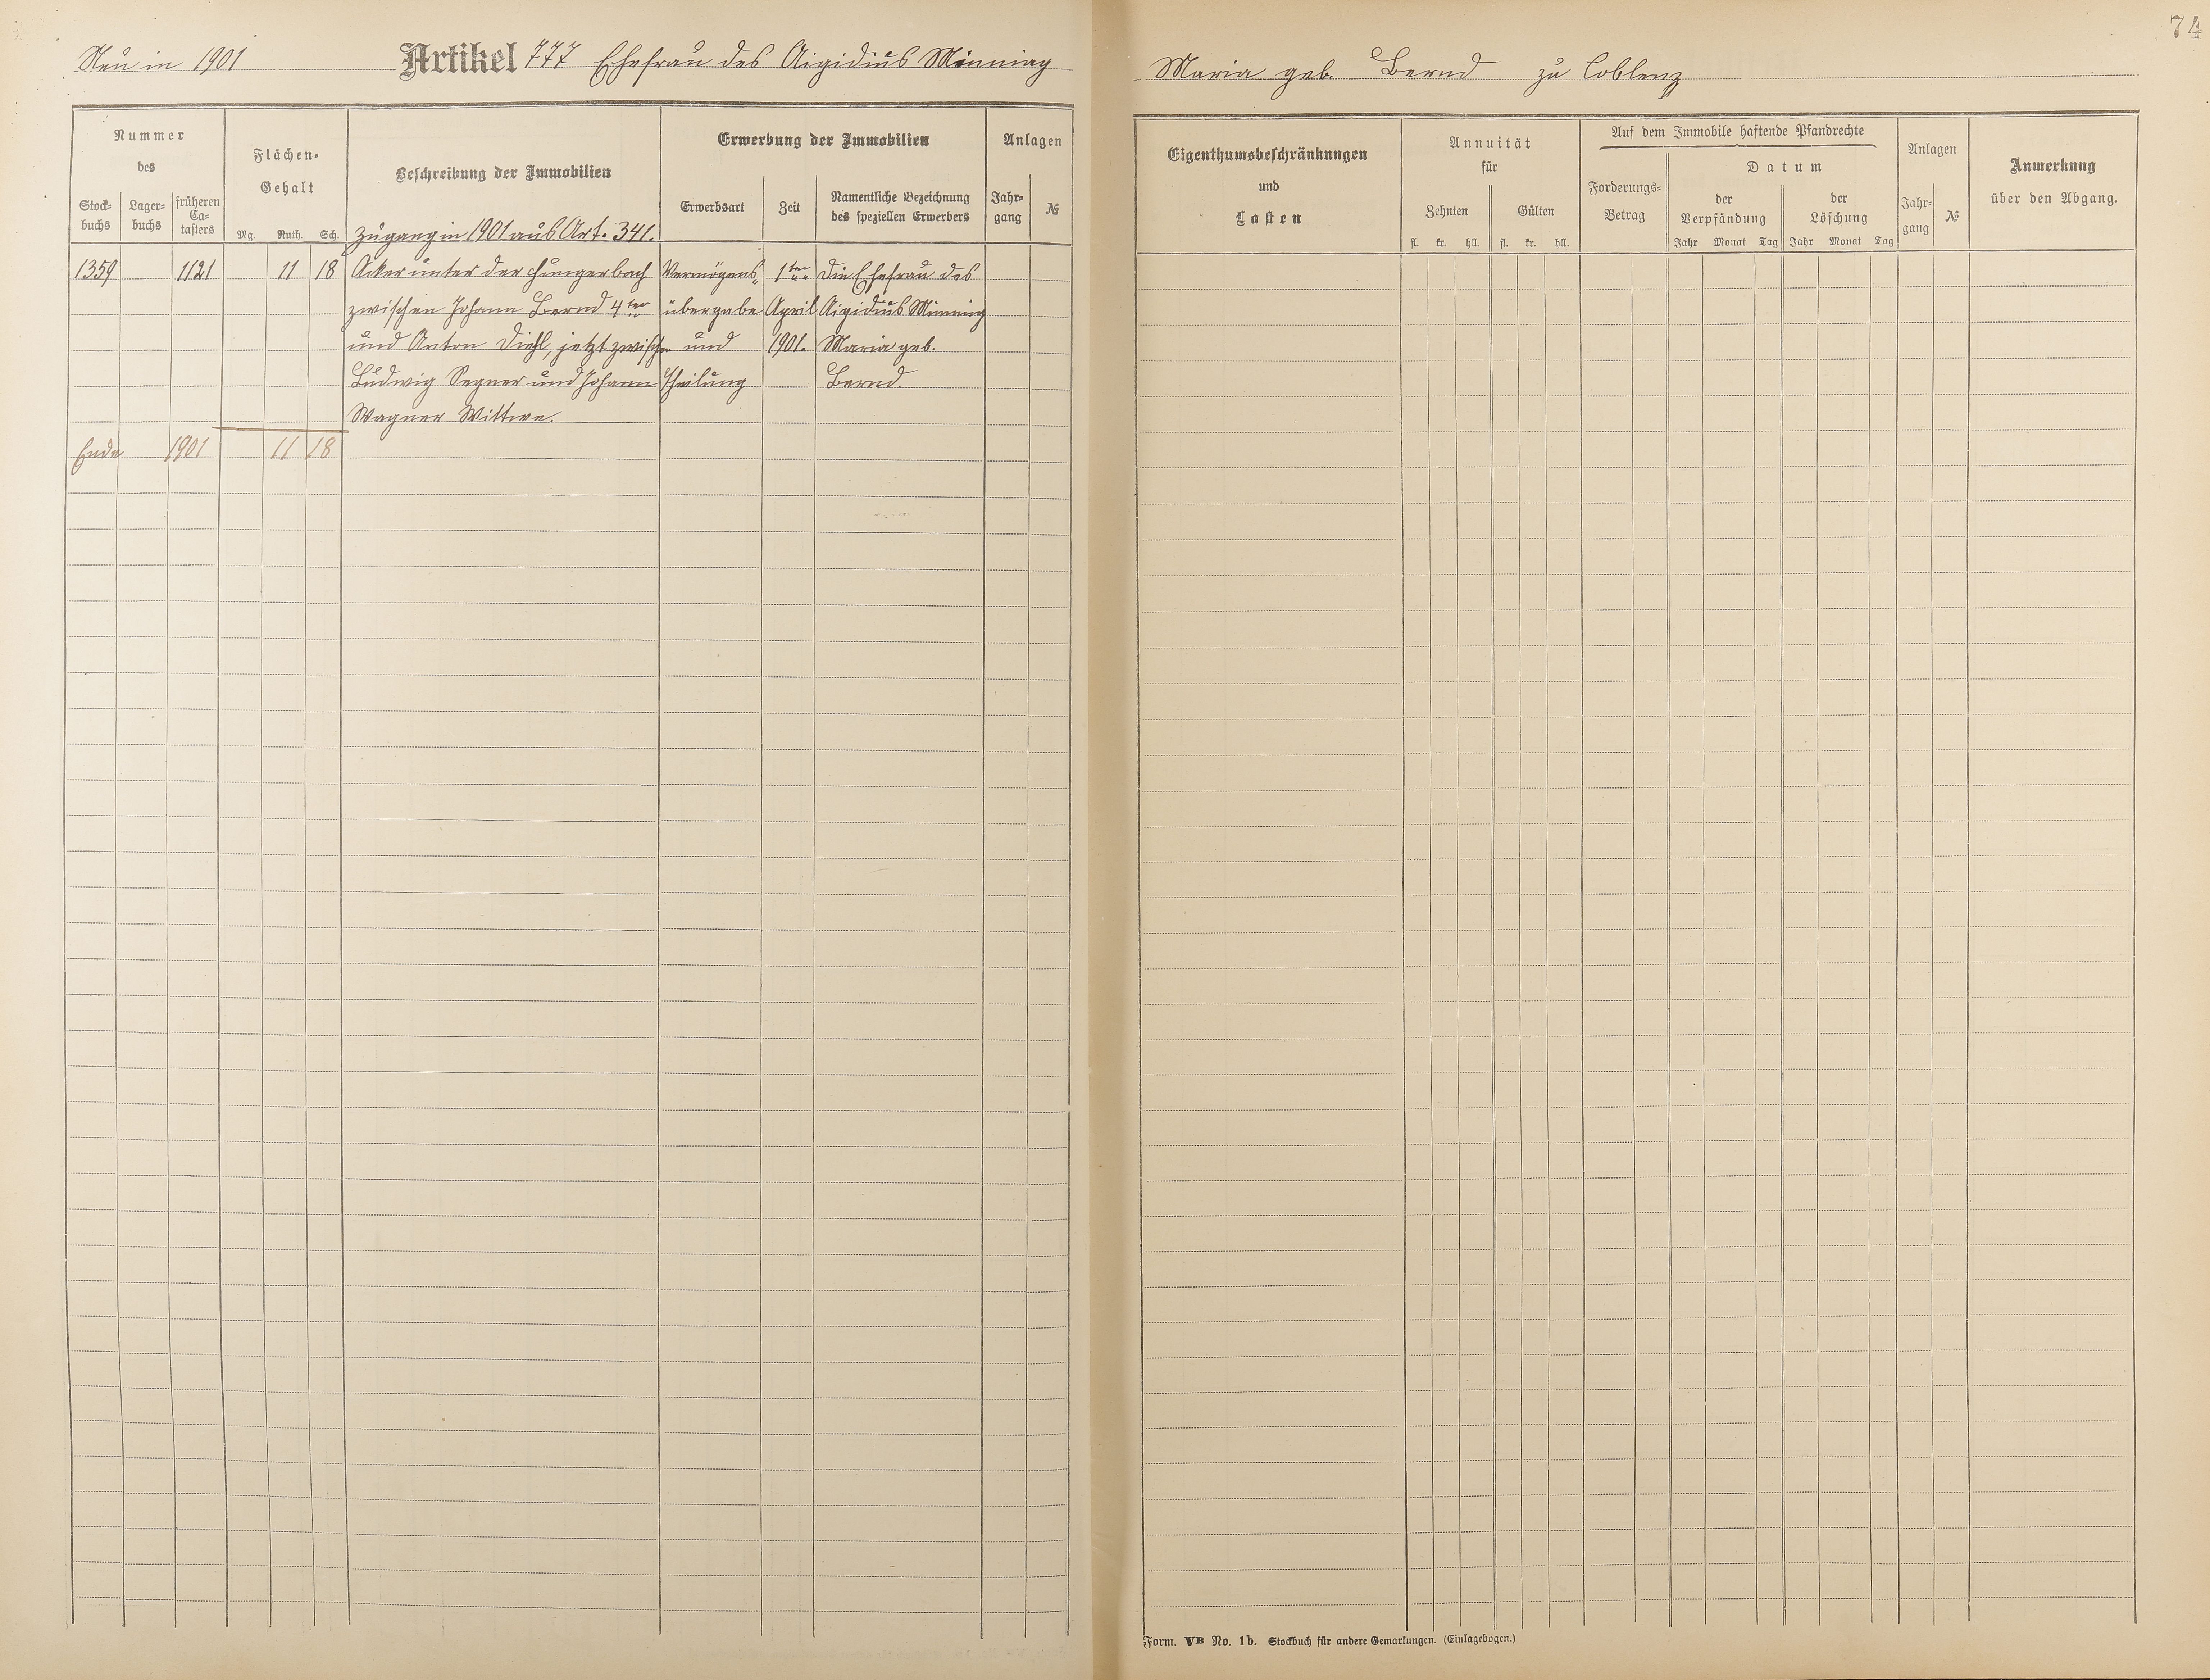 74
Neu in 1901 Artikel 777 Ehefrau des Aigidius Minning
Maria geb. Bernd zu Coblenz
Nummer
des
Stock-
buchs
Lager-
buchs
früheren
Ca-
tasters
Flächen-
Gehalt
Mg. Ruth. Sch.
Beschreibung der Immobilien
Zugang in 1901 aus Art. 341.
Erwerbung der Immobilien
Erwerbsart
Zeit
Namentliche Bezeichnung
des speziellen Erwerbers
Anlagen
Jahr-
gang
№
1359 1121 11 18 Acker unter der Hungerbach Vermögens- 1ten Die Ehefrau des
zwischen Johann Bernd 4ter übergabe April Aigidius Minning
und Anton Diehl, jetzt zwischen und 1901. Maria geb.
Ludwig Segner und Johann Theilung Bernd.
Wagner Wittwe.
Ende 1901 11 18
Eigenthumsbeschränkungen
und
Lasten
Annuität
für
Zehnten
Gülten
fl. kr. hll. fl. kr. hll.
Auf dem Immobile haftende Pfandrechte
Forderungs-
Betrag
Datum
der
Verpfändung
der
Löschung
Jahr Monat Tag Jahr Monat Tag
Anlagen
Jahr-
gang
№
Anmerkung
über den Abgang.
Form. VB No. 1b. Stockbuch für andere Gemarkungen. (Einlagebogen.)